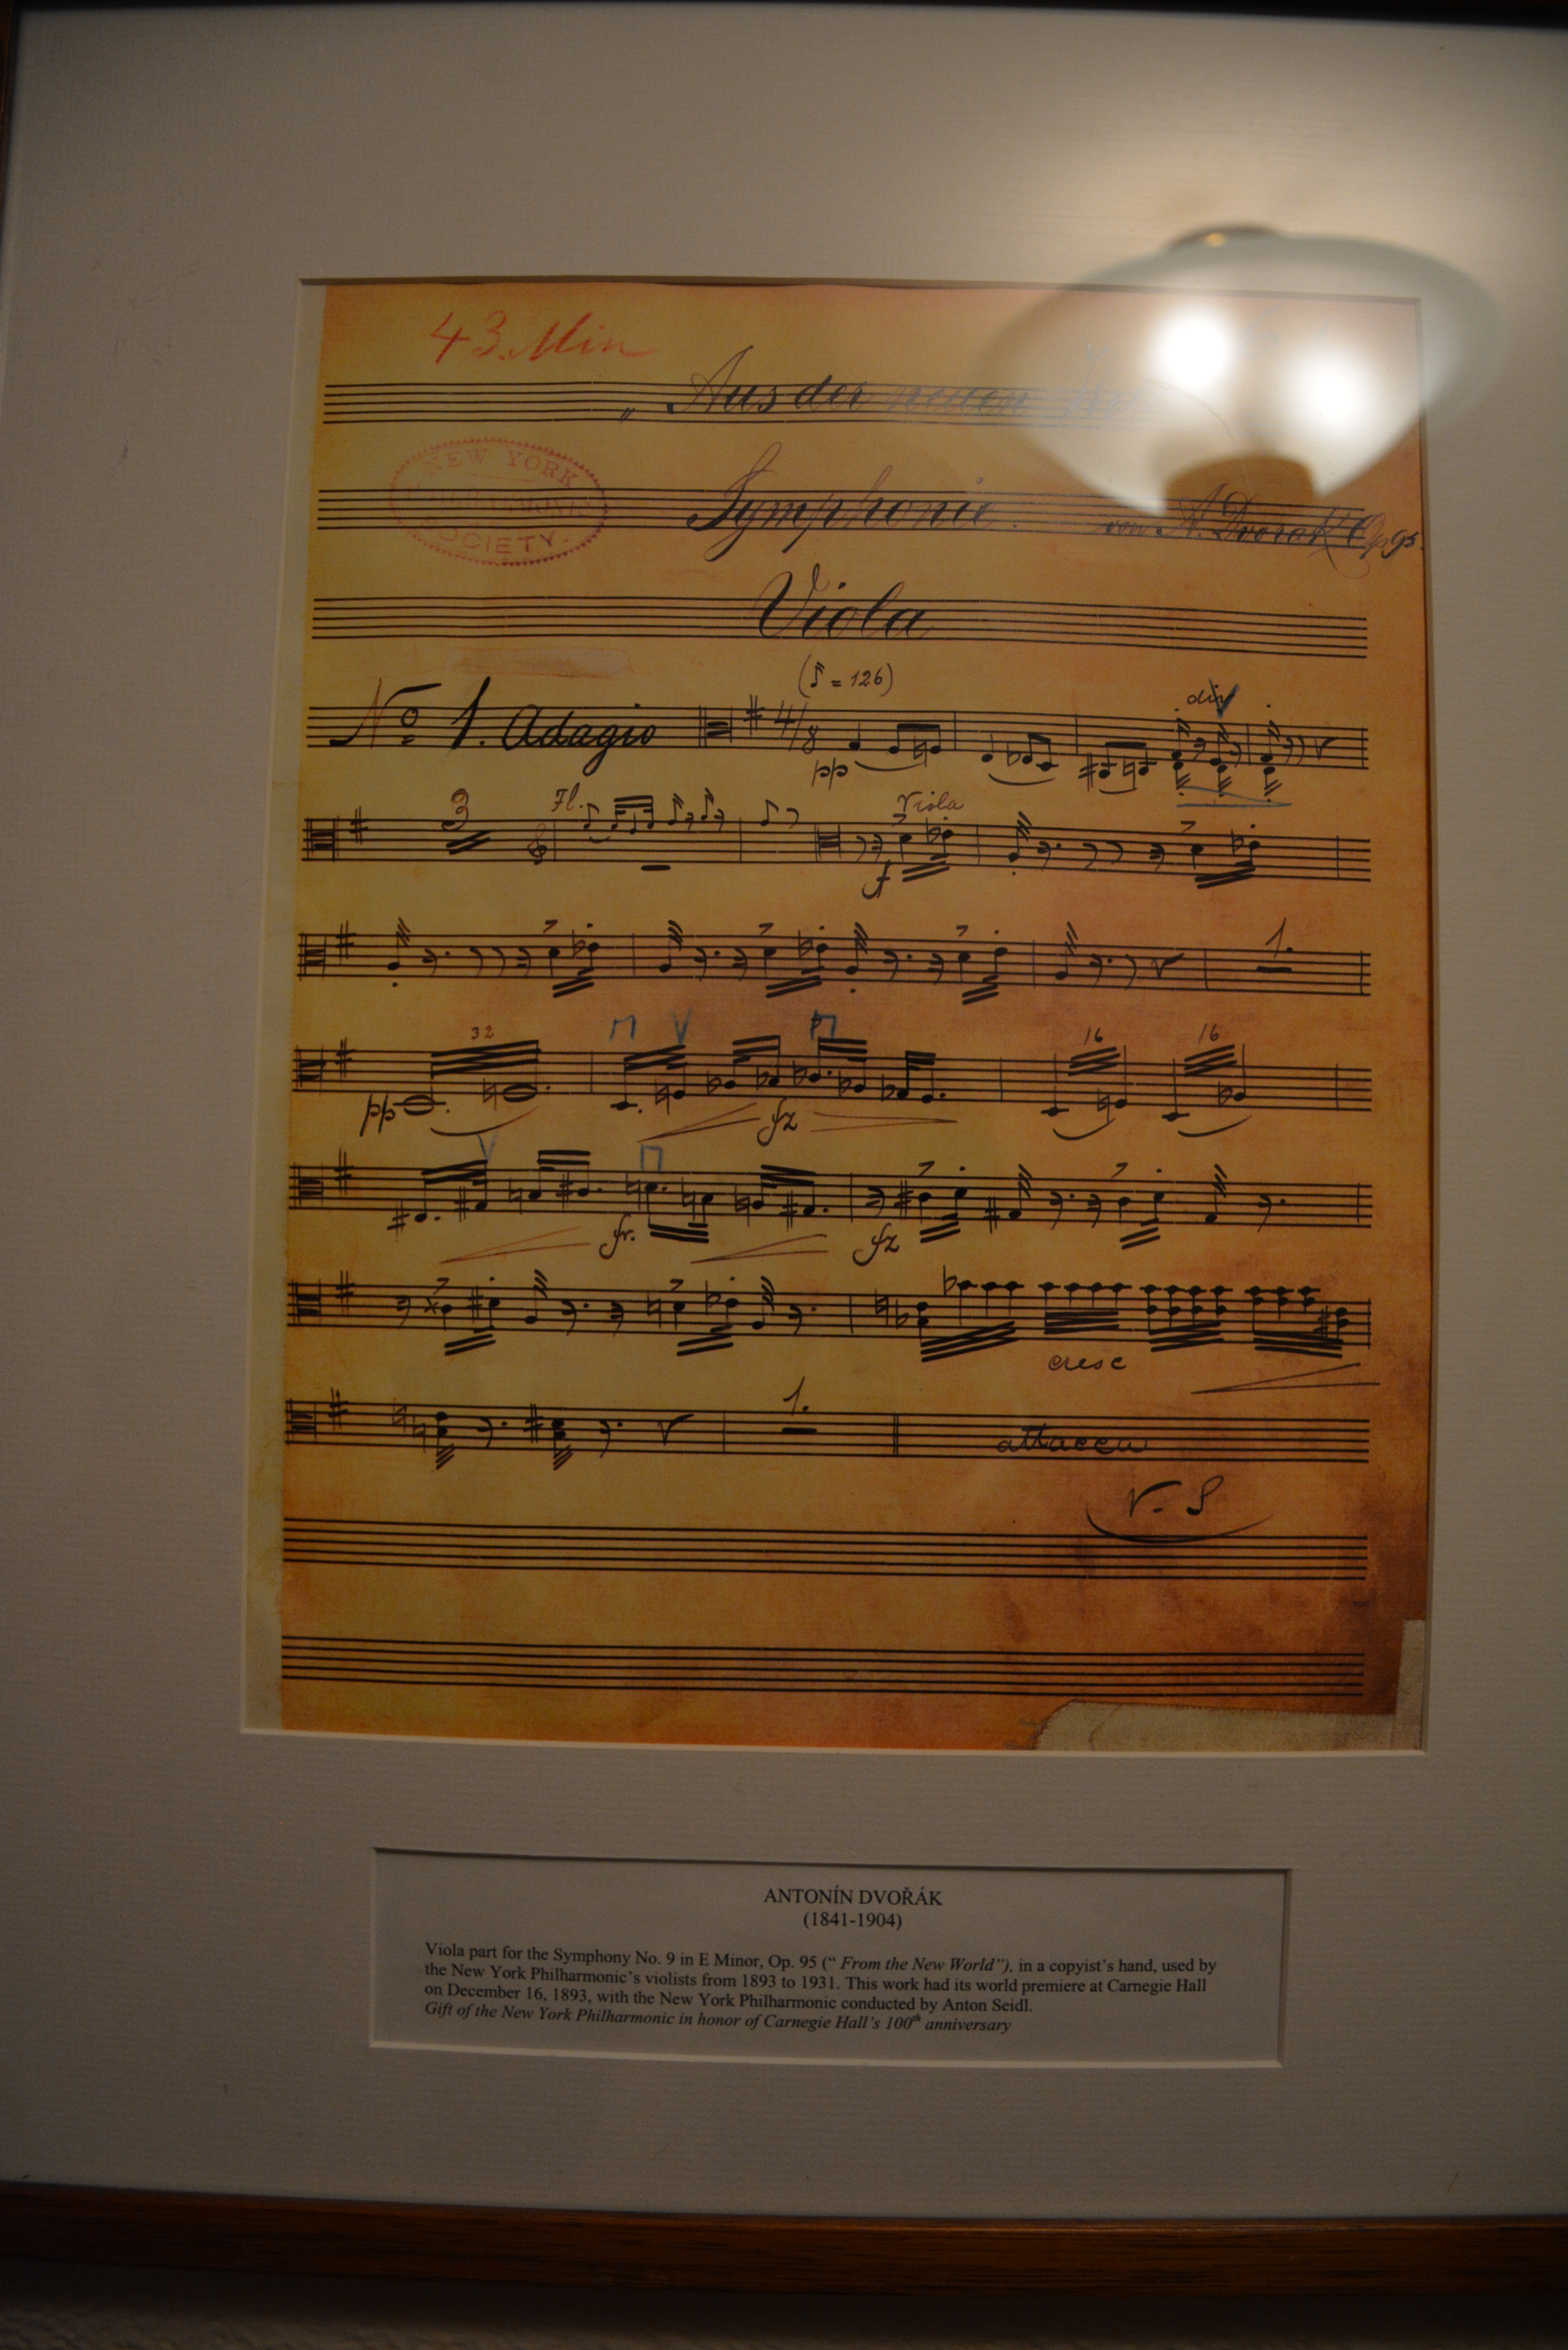 43 Min
„ Aus der neuen
NEW YORK
PHILHARMONIC
SOCIETY.
Symphonie. von A. Dvorak Op 95.
Viola
(♪ = 126)
No 1. Adagio 4/8 div
pp
3 Fl. Viola
f
1.
32 16 16
pp fz
fr. fz
cresc
1.
attacca
V. S
ANTONÍN DVOŘÁK
(1841-1904)
Viola part for the Symphony No. 9 in E Minor, Op. 95 (“ From the New World”), in a copyist’s hand, used by
the New York Philharmonic’s violists from 1893 to 1931. This work had its world premiere at Carnegie Hall
on December 16, 1893, with the New York Philharmonic conducted by Anton Seidl.
Gift of the New York Philharmonic in honor of Carnegie Hall’s 100th anniversary